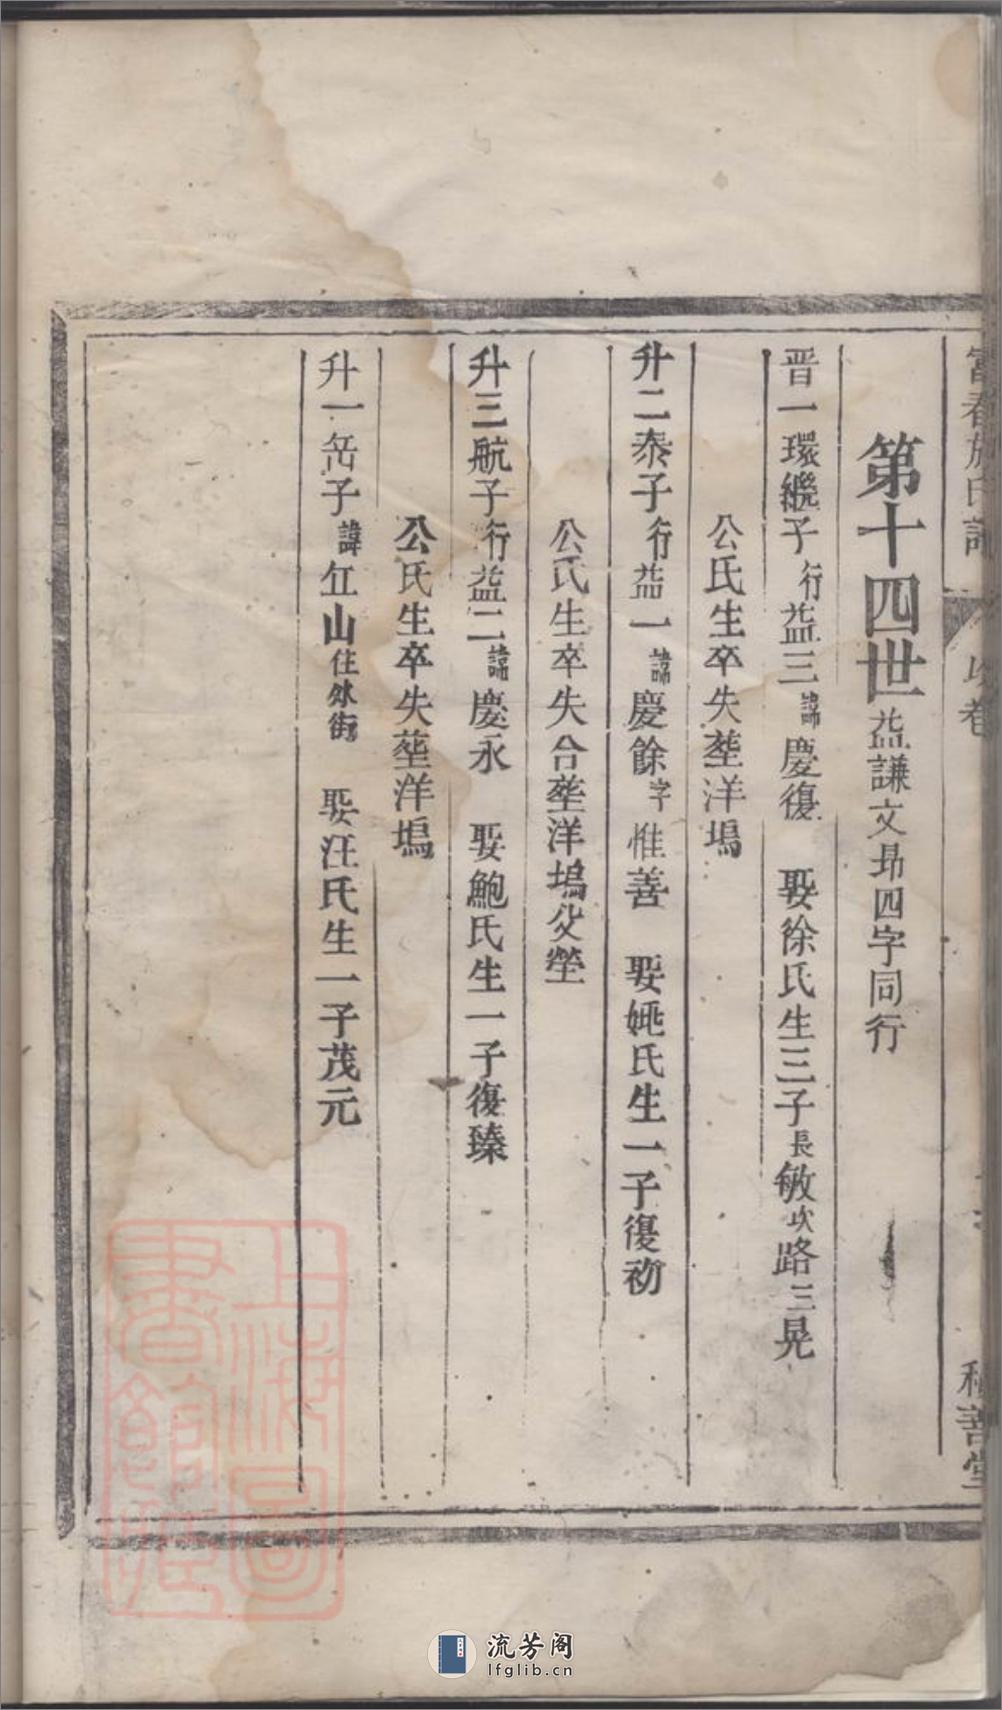 第十四世 益謙文昻四字同行
晋一環繼子行益三諱慶復　娶徐氏生三子長敏次路三晃
公氏生卒失塟洋塢
升二泰子行益一諱慶餘字惟善　娶姚氏生一子復初
公氏生卒失合塟洋塢父塋
升三航子行益二諱慶永　娶鮑氏生一子復臻
公氏生卒失塟洋塢
升一岳子諱仜山住外街　娶汪氏生一子茂元
富春施氏譜
卷
積善堂
上海圖書館藏
流芳阁
lfglib.cn